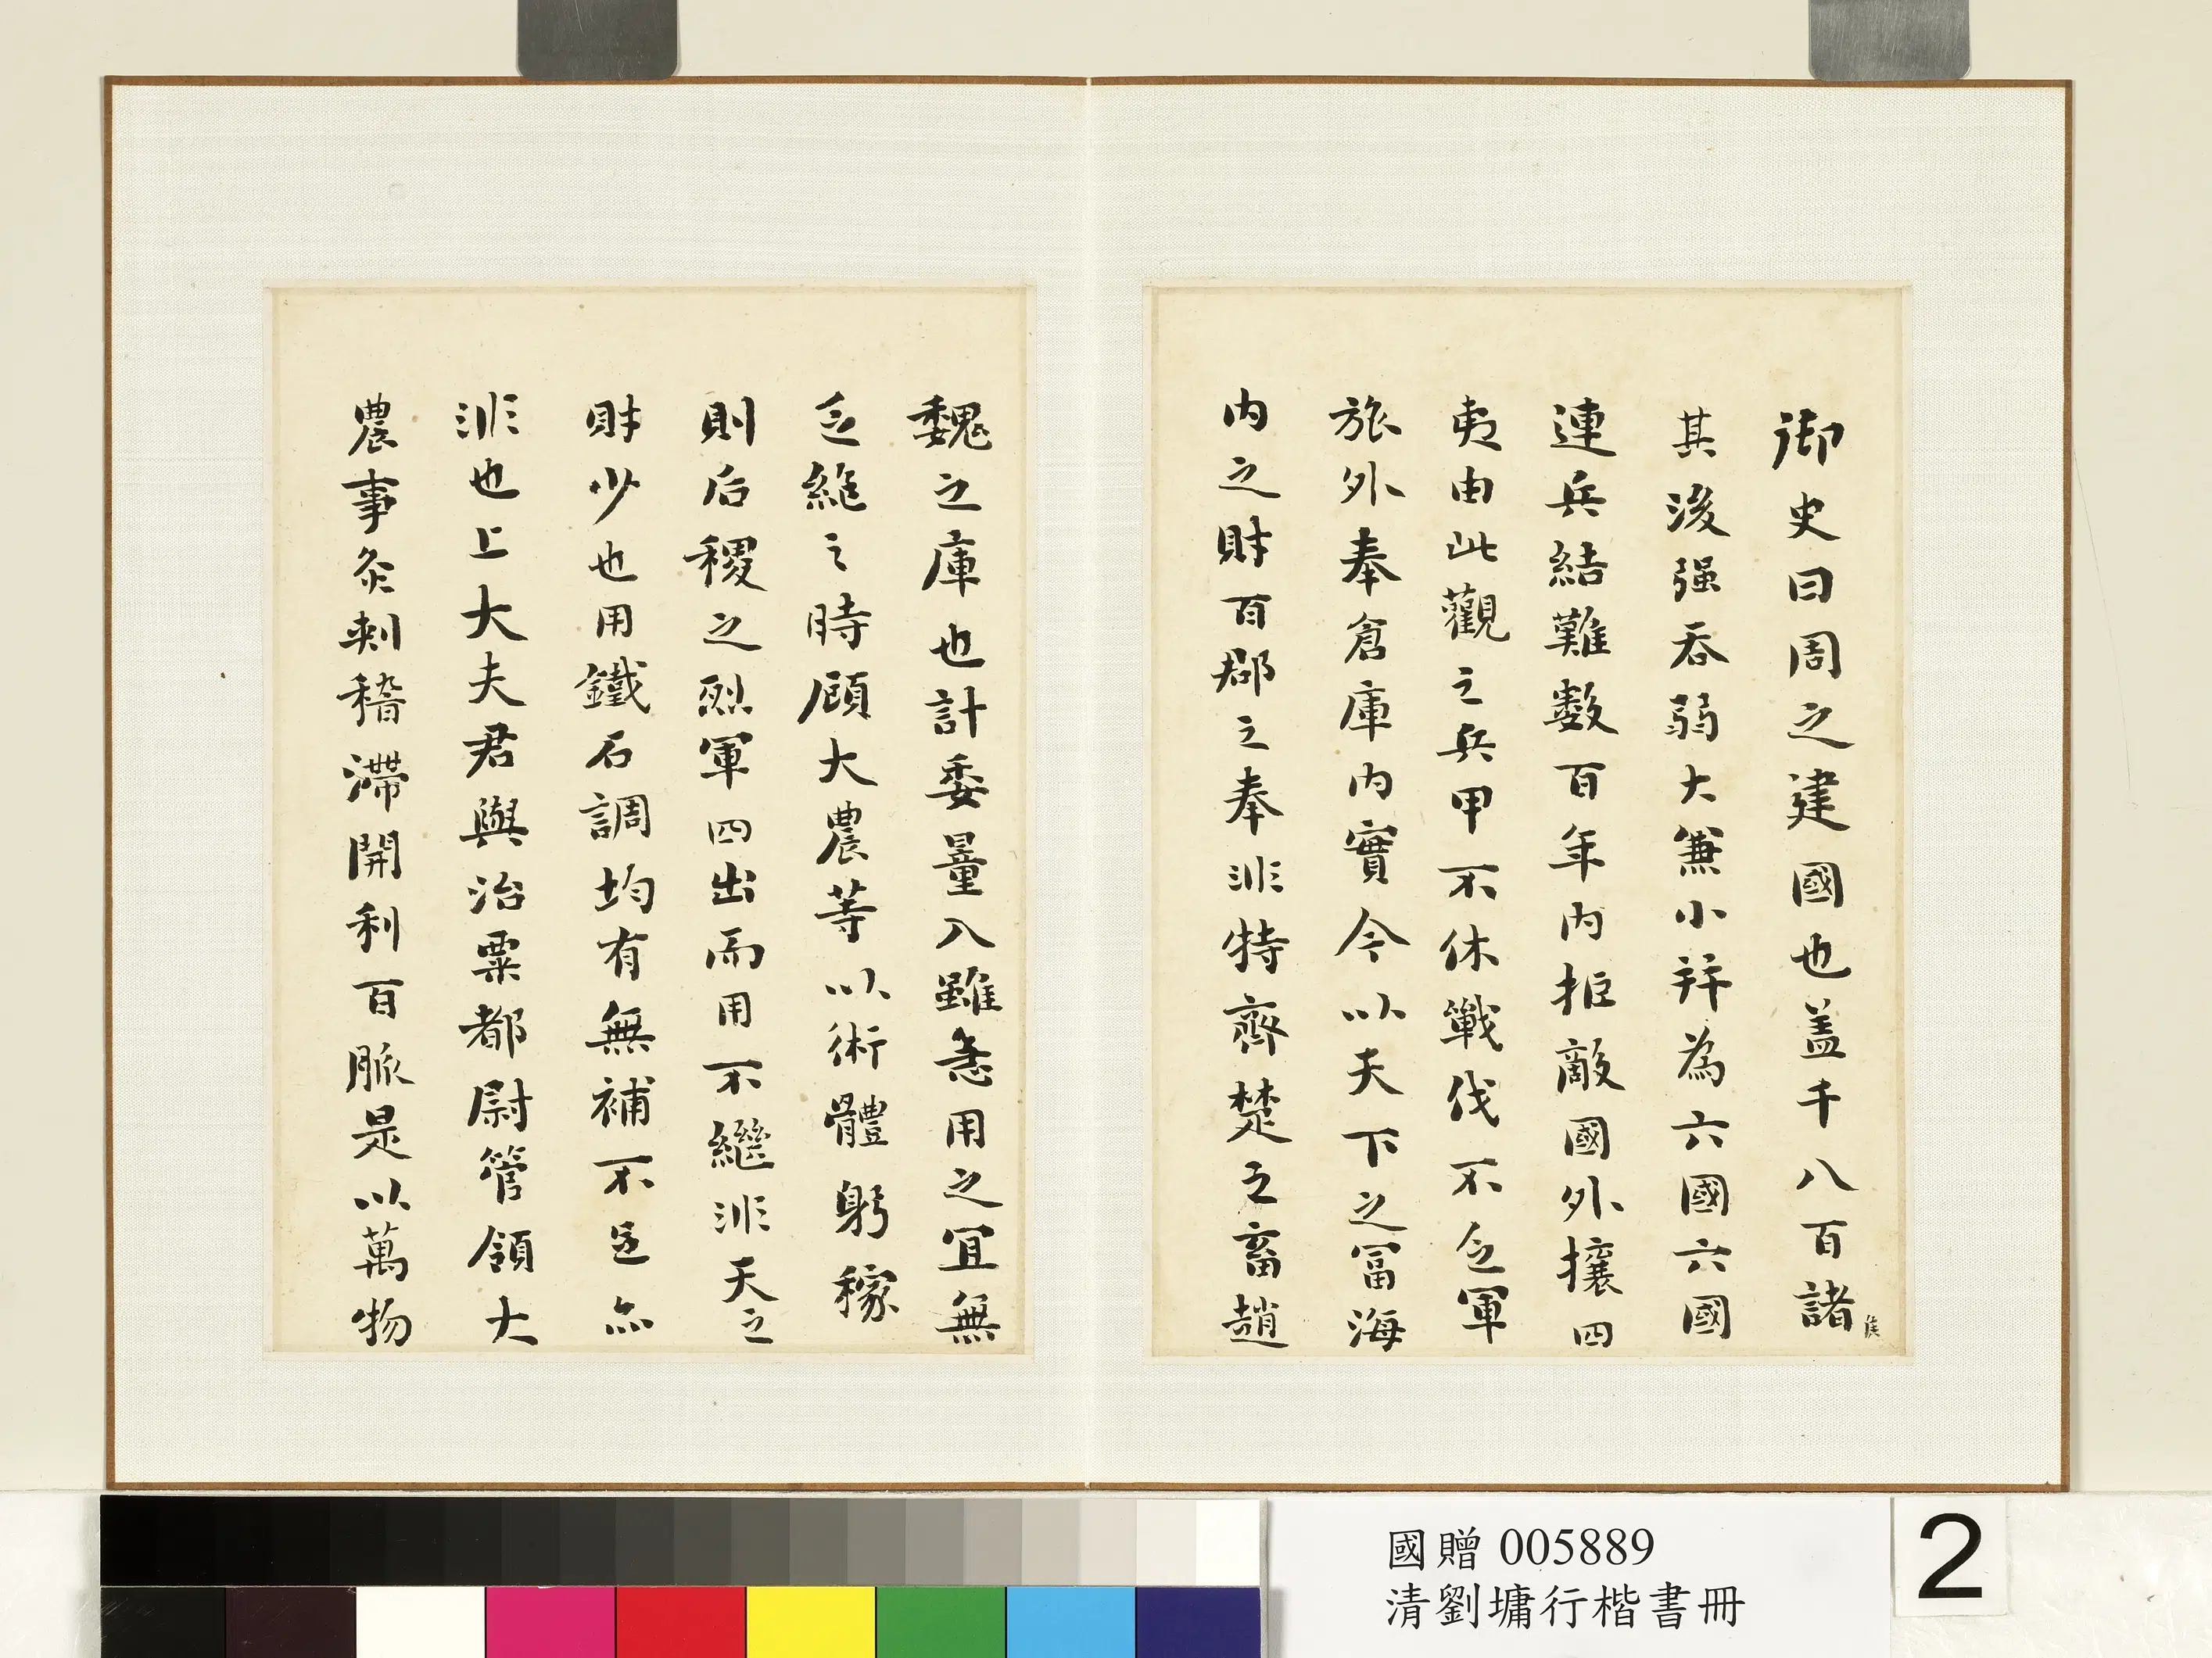 御史曰周之建國也盖千八百諸侯
其後强吞弱大兼小并為六國六國
連兵結難数百年内拒敵國外攘四
夷由此觀之兵甲不休戰伐不乏軍
旅外奉倉庫内實今以天下之富海
内之財百郡之奉非特齊楚之畜趙
魏之庫也計委量入雖急用之宜無
乏絶之時顧大農等以術體躬稼
則后稷之烈軍四出而用不繼非天之
財少也用鐵石調均有無補不足亦
非也上大夫君與治粟都尉管領大
農事灸刺稽滯開利百脈是以萬物
國贈 005889
清劉墉行楷書冊
2